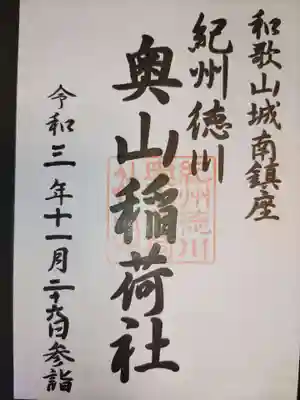 和歌山城南鎮座
紀州徳川
奥山稲荷社
令和三年十一月二十六日参詣